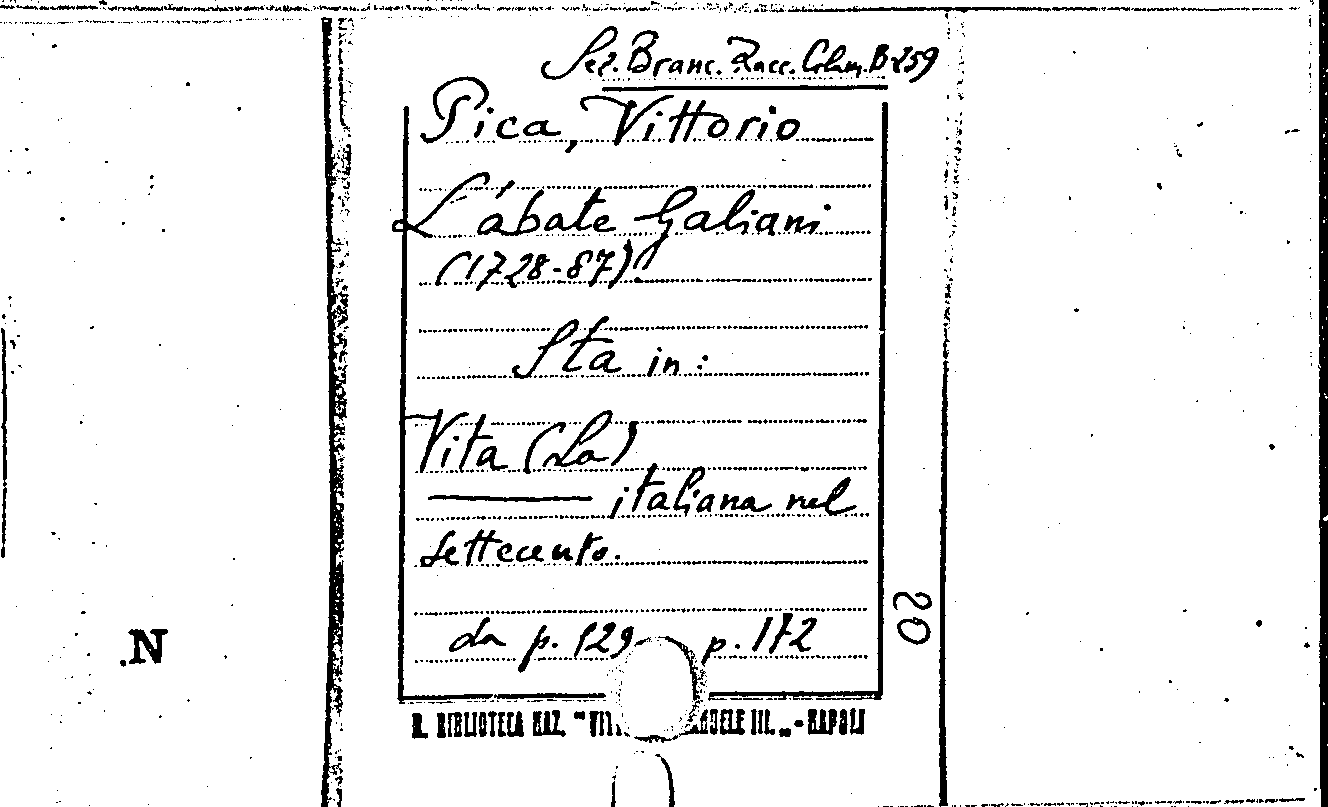 Sez. Branc. Racc. Colum. B 259
Pica, Vittorio
L'abate Galiani
(1728-87).
Sta in:
Vita (La)
italiana nel
settecento.
da p. 129 p. 172
20
N
R. BIBLIOTECA NAZ. " III. „ - NAPOLI